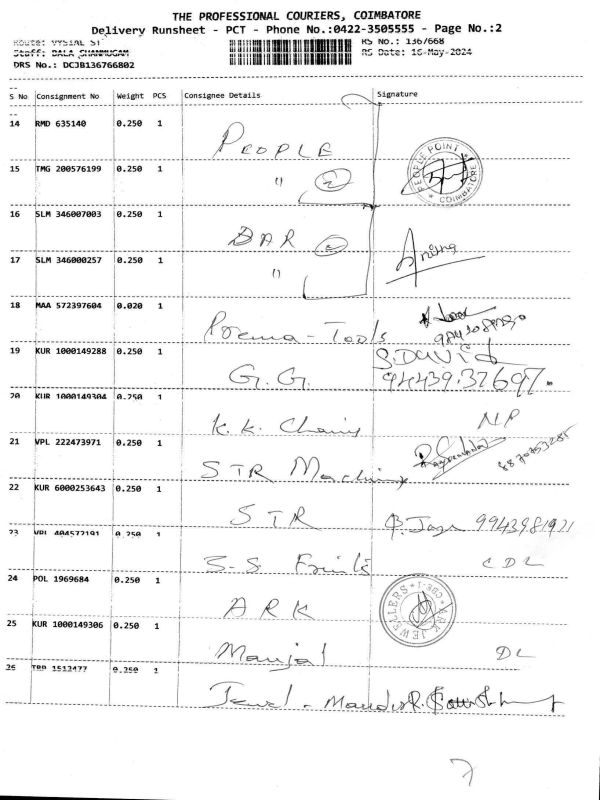 THE PROFESSIONAL COURIERS, COIMBATORE
Delivery Runsheet - PCT - Phone No.:0422-3505555 - Page No.:2
Route: VYSIAL ST RS No.: 1367668
Staff: BALA SHANMUGAM RS Date: 16-May-2024
DRS No.: DCJB136766802
S No Consignment No Weight PCS Consignee Details Signature
14 RMD 635140 0.250 1 PEOPLE
PEOPLE POINT COIMBATORE
15 TMG 200576199 0.250 1 " 2
16 SLM 346007003 0.250 1 DAR 2 Anitha
17 SLM 346000257 0.250 1 "
18 MAA 572397604 0.020 1 Poema - Tools
19 KUR 1000149288 0.250 1 G.G. S.DAVID
94439.37697.
20 KUR 1000149304 0.250 1 K.K. Chains NP
21 VPL 222473971 0.250 1 STR Machines
22 KUR 6000253643 0.250 1 STR 9943981921
23 VPL 404572191 0.250 1 S-S CDL
24 POL 1969684 0.250 1 ARK
ARK JEWELLERS CBE-1
25 KUR 1000149306 0.250 1 Manjal DL
26 1512477 0.250 1 Jewel -
7